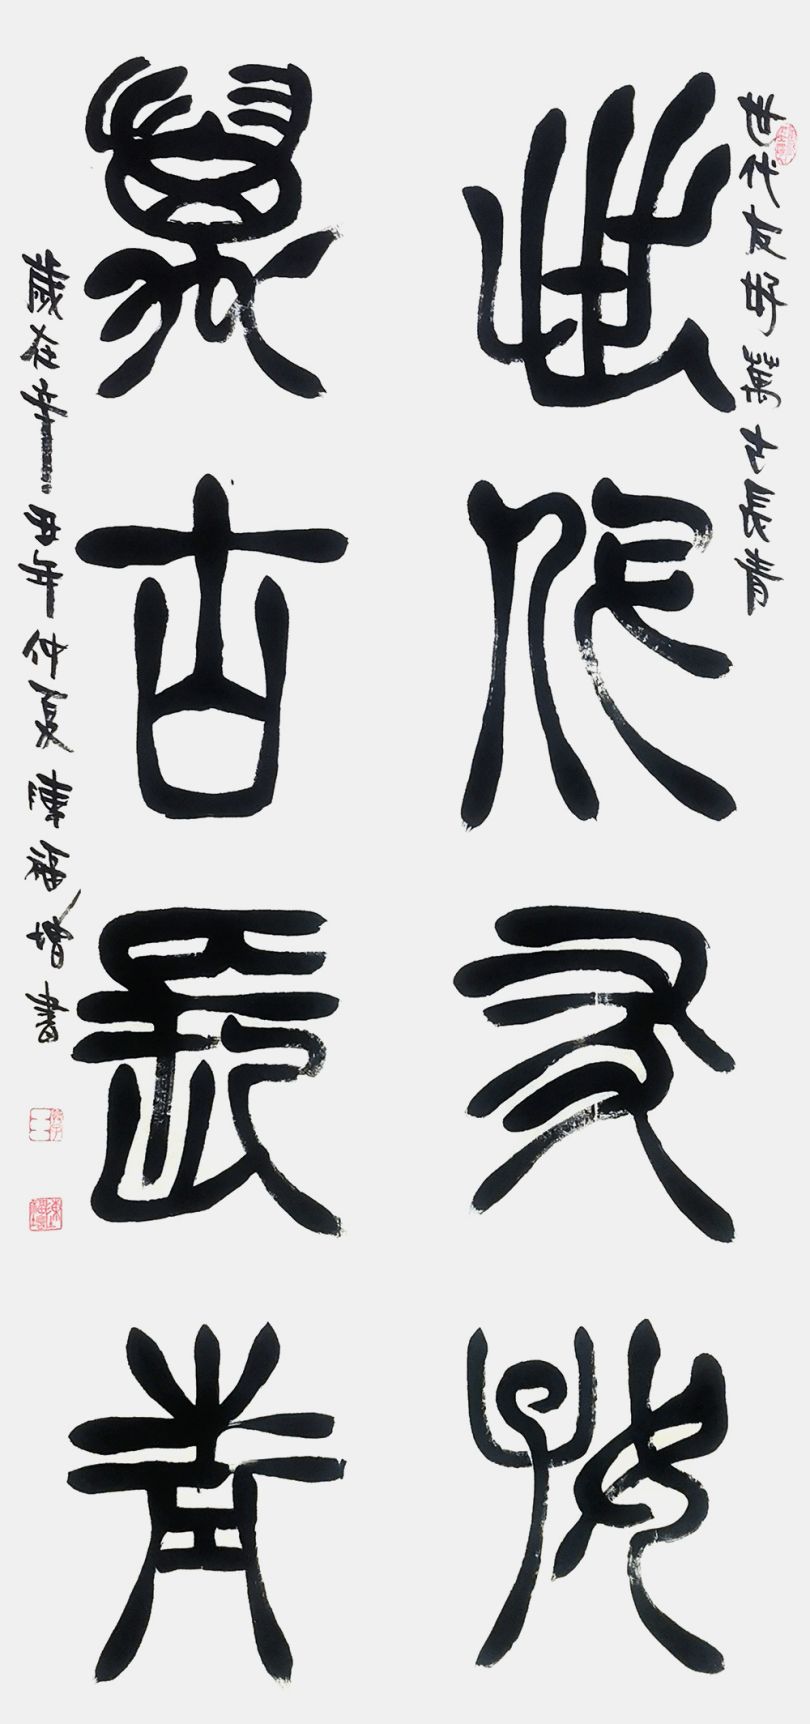 世代友好萬古長青
世代友好
萬古長青
歲在辛丑年仲夏陳福增書